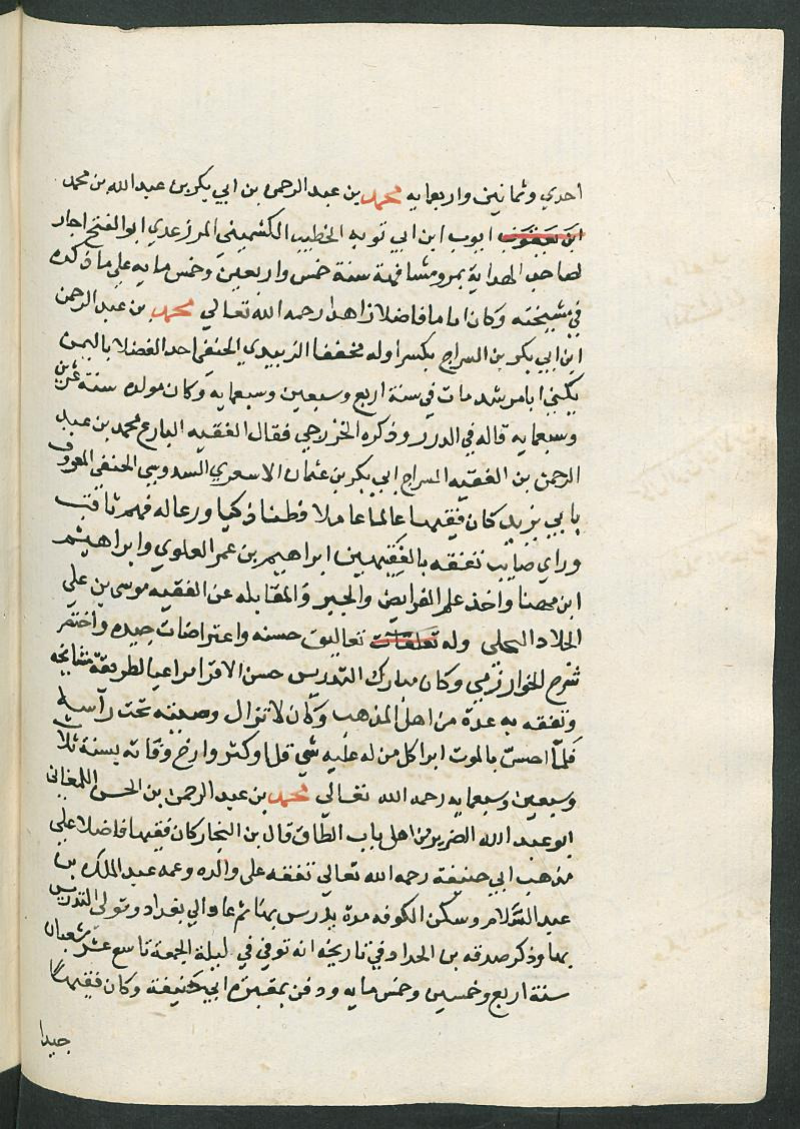 احدي وثمانين واربعمايه محمد بن عبد الرحمن بن ابي بكر بن عبد الله بن محمد
ابن يعقوب ايوب ابن ابي توبه الخطيب الكشميهني المروزي ابو الفتح اجاز
لصاحب الهداية بمرو مشافهة سنة خمس واربعين وخمس مايه علي ما ذكره
في مشيخته وكان اماما فاضلا زاهدا رحمه الله تعالي محمد بن عبد الرحمن
ابن ابي بكر بن السراج بكسر اوله مخففا الزبيدي الحنفي احد الفضلا باليمن
يكني ابا مرشد مات في سنة اربع وسبعين وسبعمايه وكان مولده سنة عشرين
وسبعمايه قاله في الدرر وذكره الخزرجي فقال الفقيه البارع محمد بن عبد
الرحمن بن الفقيه السراج ابي بكر بن عثمان الاسعري السدوسي الحنفي المعروف
بابي يزيد كان فقيها عالما عاملا فطنا ذكيا ورعا له فهم ثاقب
وراي صايب تفقه بالفقيهين ابراهيم بن عمر العلوي وابراهيم
ابن مهنا واخذ علم الفرايض والجبر والمقابله عن الفقيه موسى بن علي
الجلاد النحلي وله تعلقات تعاليق حسنه واعتراضات جيده واختصر
شرح الخوارزمي وكان مبارك التدريس حسن الاقرا مراعيا لطريقة مشايخه
وتفقه به عدة من اهل المذهب وكان لا تزال وصيته تحت رأسه
فلما احس بالموت ابرا كل من له عليه شي قل او كثر وارخ وفاته بسنة ثلاث
وسبعين وسبعمايه رحمه الله تعالي محمد بن عبد الرحمن بن الحسن اللمغاني
ابو عبد الله الضرير من اهل باب الطاق قال بن النجار كان فقيها فاضلا علي
مذهب ابي حنيفة رحمه الله تعالي تفقه على والده وعمه عبد الملك بن
عبد السلام وسكن الكوفه مدة يدرس بها ثم عاد الي بغداد وتولى التدريس
بها وذكر صدقه بن الحداد في تاريخه انه توفي في ليلة الجمعة تاسع عشر شعبان
سنة اربع وخمسين وخمس مايه ودفن بمقبرة ابي حنيفة وكان فقيها
جيدا